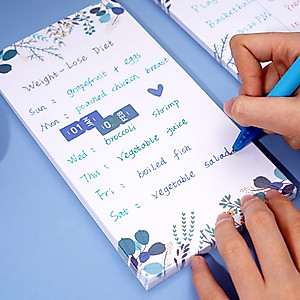 Weight-Lose Diet
Sun = grapefruit + eggs
Mon = poained chicken breast
Wed = broccoli shrimp
Thu = Vegetable juice
Fri = boiled fish
Sat = vegetable salad
Basketball